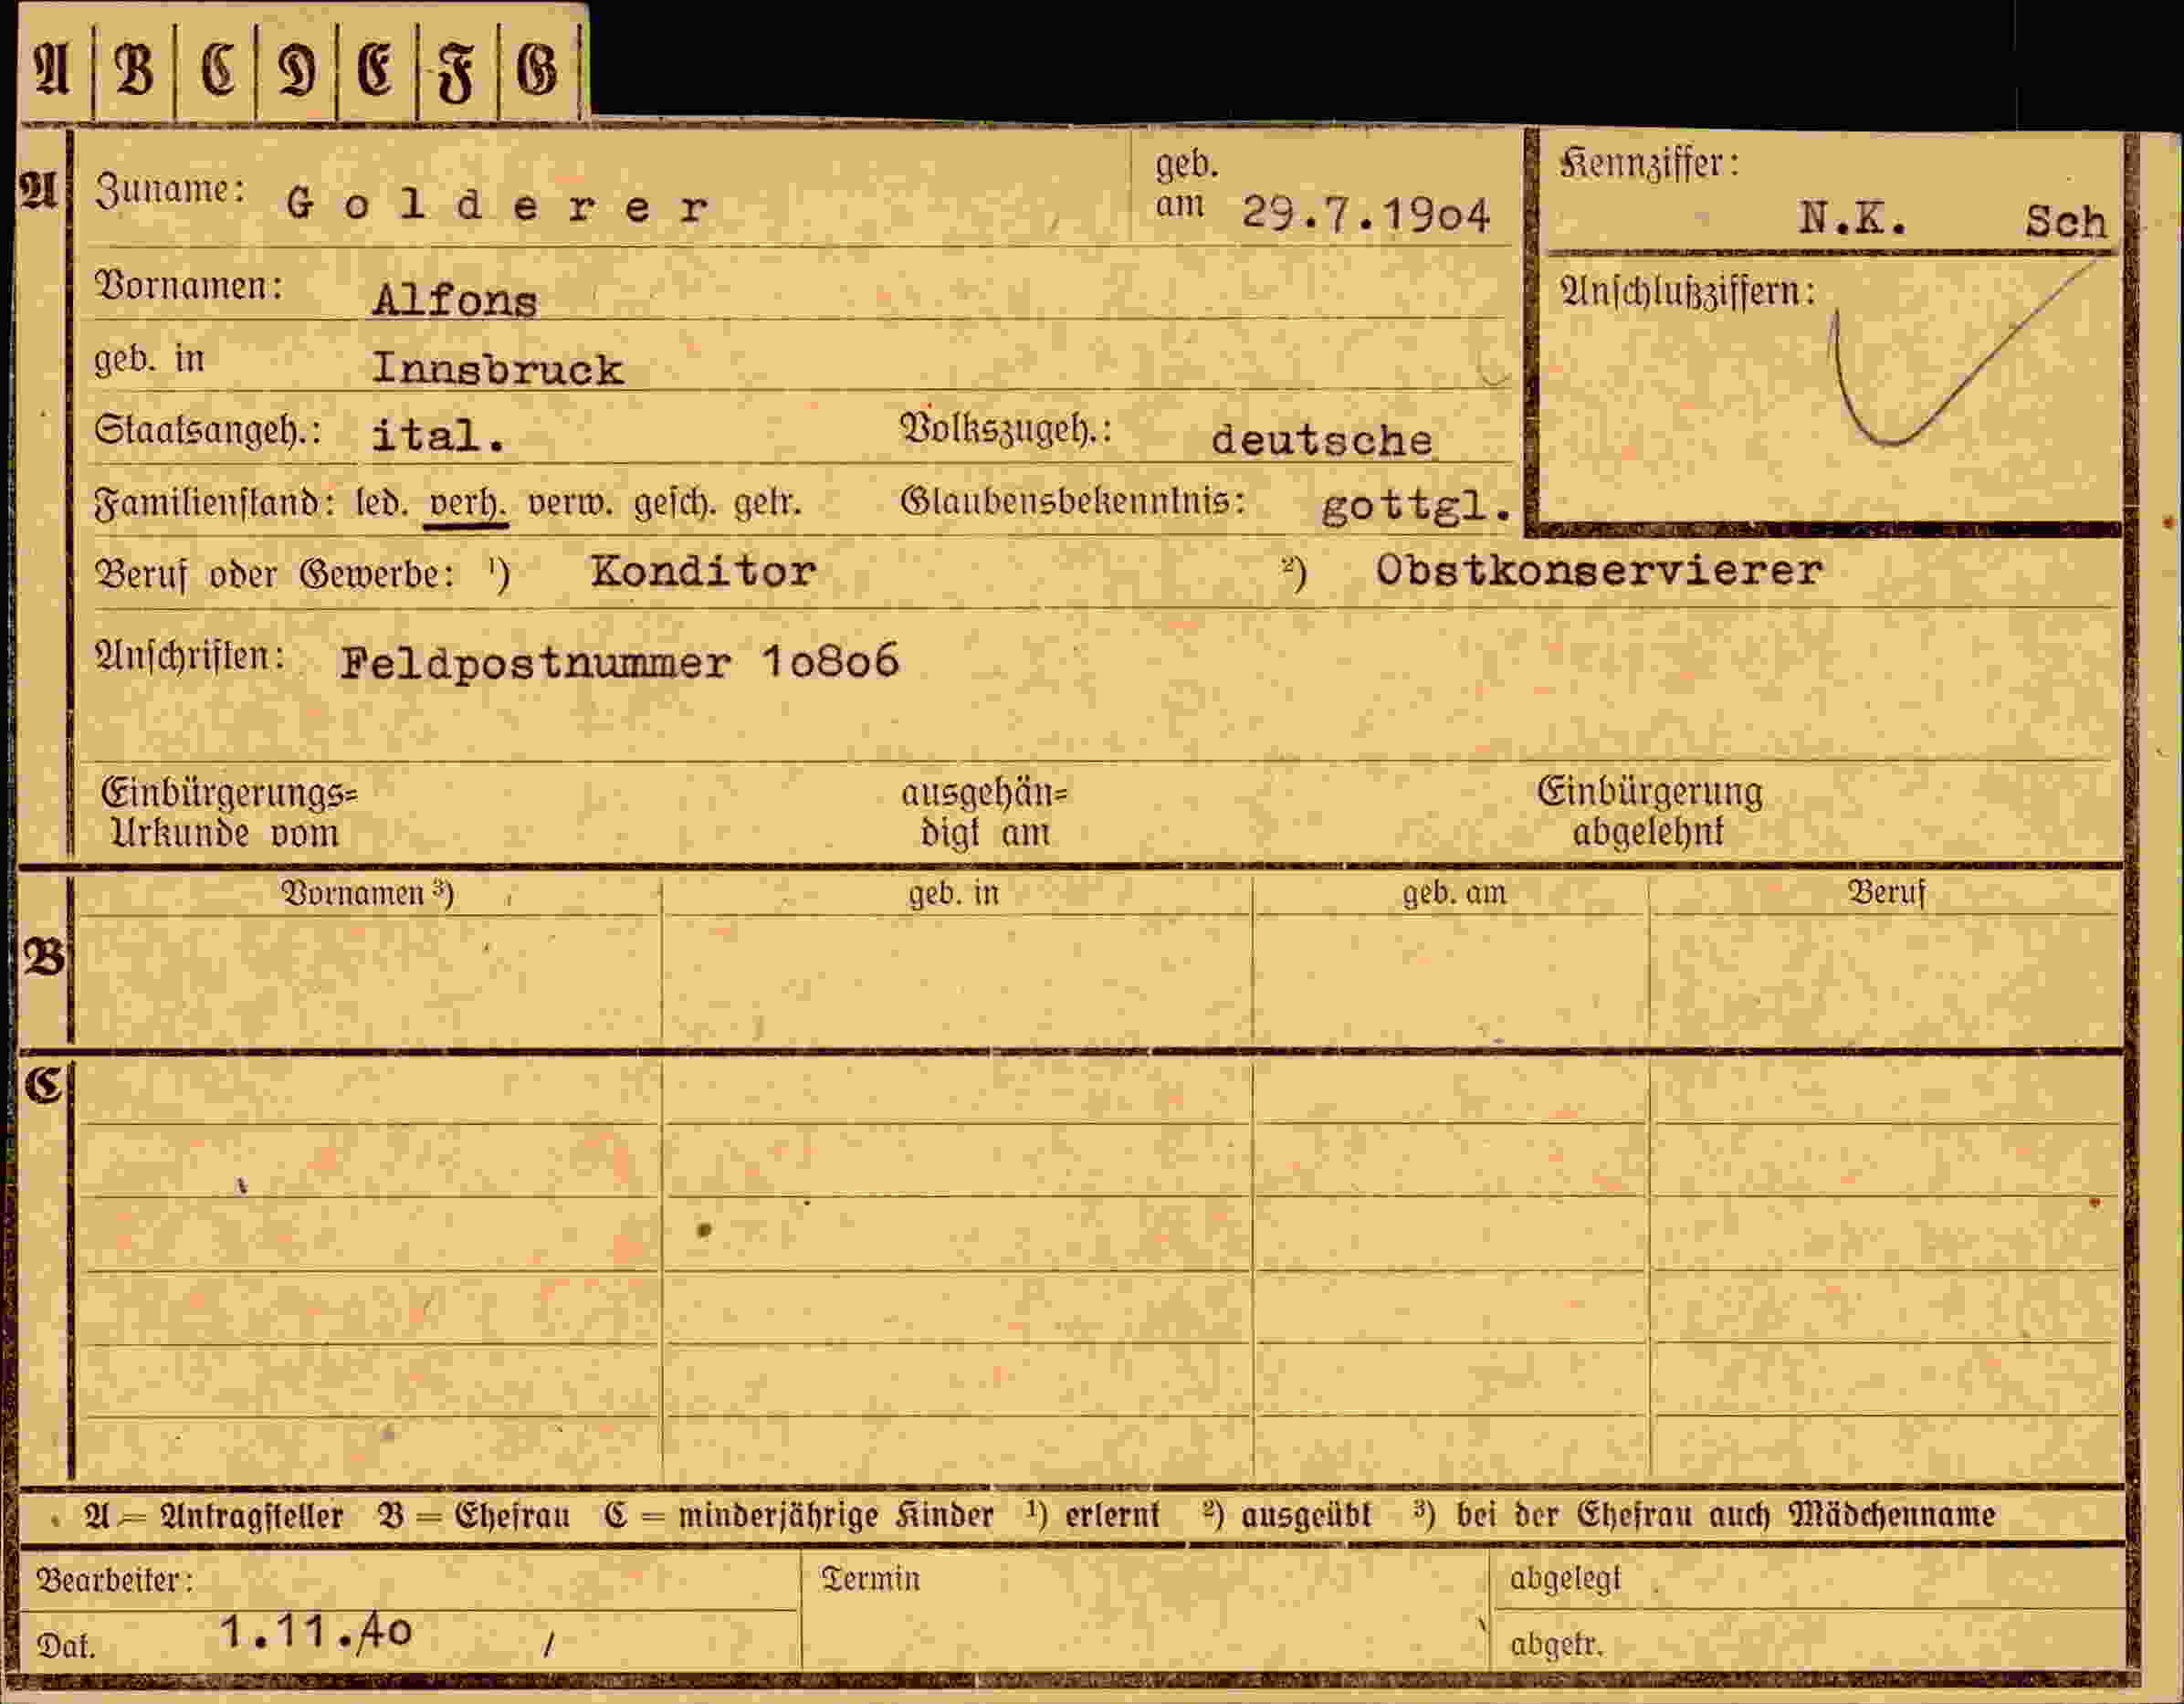 A B C D E F G
A Zuname: Golderer geb. am 29.7.19o4 Kennziffer: N.K. Sch
Vornamen: Alfons Anschlußziffern:
geb. in Innsbruck
Staatsangeh.: ital. Volkszugeh.: deutsche
Familienstand: led. verh. verw. gesch. getr. Glaubensbekenntnis: gottgl.
Beruf oder Gewerbe: ¹) Konditor ²) Obstkonservierer
Anschriften: Feldpostnummer 1o8o6
Einbürgerungs= ausgehän= Einbürgerung
Urkunde vom digt am abgelehnt
Vornamen ³) geb. in geb. am Beruf
B
C
A = Antragsteller B = Ehefrau C = minderjährige Kinder ¹) erlernt ²) ausgeübt ³) bei der Ehefrau auch Mädchenname
Bearbeiter: Termin abgelegt
Dat. 1.11.40 / abgetr.